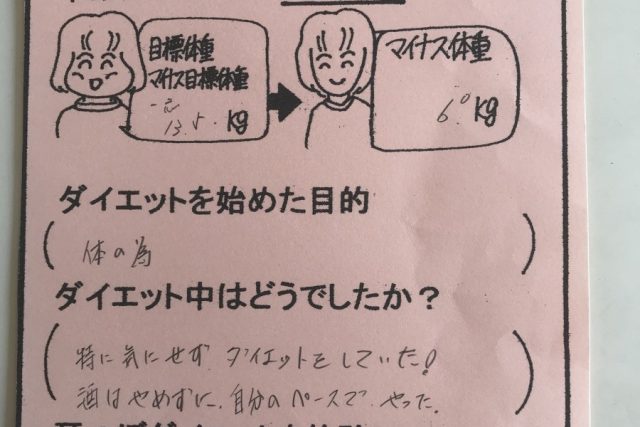 目標体重
マイナス目標体重
13.5. kg
マイナス体重
6.0 kg
ダイエットを始めた目的
体の為
ダイエット中はどうでしたか？
特に気にせず ダイエットをしていた!
酒はやめずに、自分のペースで やった。